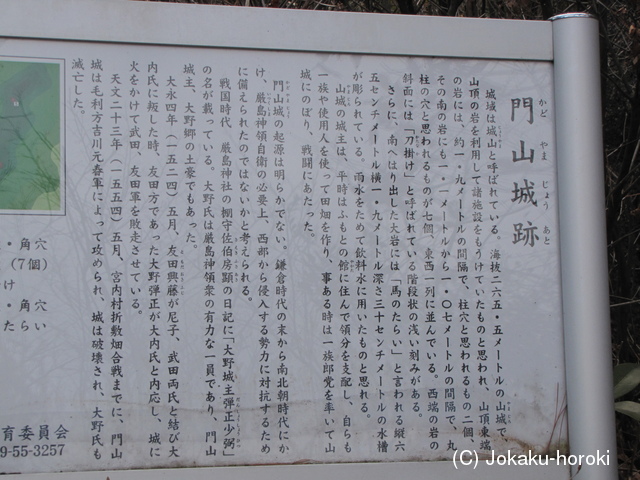 門山城跡
かど やま じょう あと
城域は城山と呼ばれている。海抜二六五・五メートルの山城で、
山頂の岩を利用して諸施設をもうけていたものと思われ、山頂東端
の岩には、約一・九メートルの間隔で、柱穴と思われるもの二個、
その南の岩にも一・一メートルから一・〇七メートルの間隔で、丸
柱の穴と思われるものが七個、東西一列に並んでいる。西端の岩の
斜面には「刀掛け」と呼ばれている階段状の浅い刻みがある。
さらに、南へはり出した大岩には「馬のたらい」と言われる縦六
五センチメートル横一・九メートル深さ三十センチメートルの水槽
が彫られている。雨水をためて飲料水に用いたものと思れる。
山城の城主は、平時はふもとの館に住んで領分を支配し、自らも
一族や使用人を使って田畑を作り、事ある時は一族郎党を率いて山
城にのぼり、戦闘にあたった。
門山城の起源は明らかでない。鎌倉時代の末から南北朝時代にか
け、厳島神領自衛の必要上、西部から侵入する勢力に対抗するため
に備えられたのではないかと考えられる。
戦国時代、厳島神社の棚守佐伯房顕の日記に「大野城主弾正少弼」
の名が載っている。大野氏は厳島神領衆の有力な一員であり、門山
城主、大野郷の土豪でもあった。
大永四年（一五二四）五月、友田興藤が尼子、武田両氏と結び大
内氏に叛した時、友田方であった大野弾正が大内氏と内応し、城に
火をかけて武田、友田軍を敗走させている。
天文二十三年（一五五四）五月、宮内村折敷畑合戦までに、門山
城は毛利方吉川元春軍によって攻められ、城は破壊され、大野氏も
滅亡した。
・角穴
(7個)
け
・角穴
たらい
育委員会
9-55-3257
(C) Jokaku-horoki